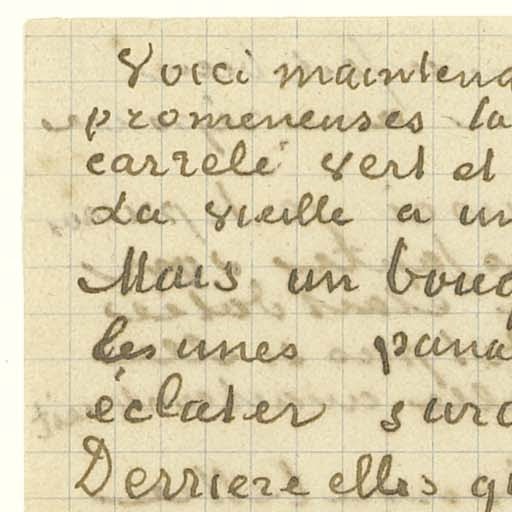 Voici maintena
promeneuses la
carrelé vert et
La vieille a un
Mais un bouq
les unes pana
éclater sur
Derriere elles qu